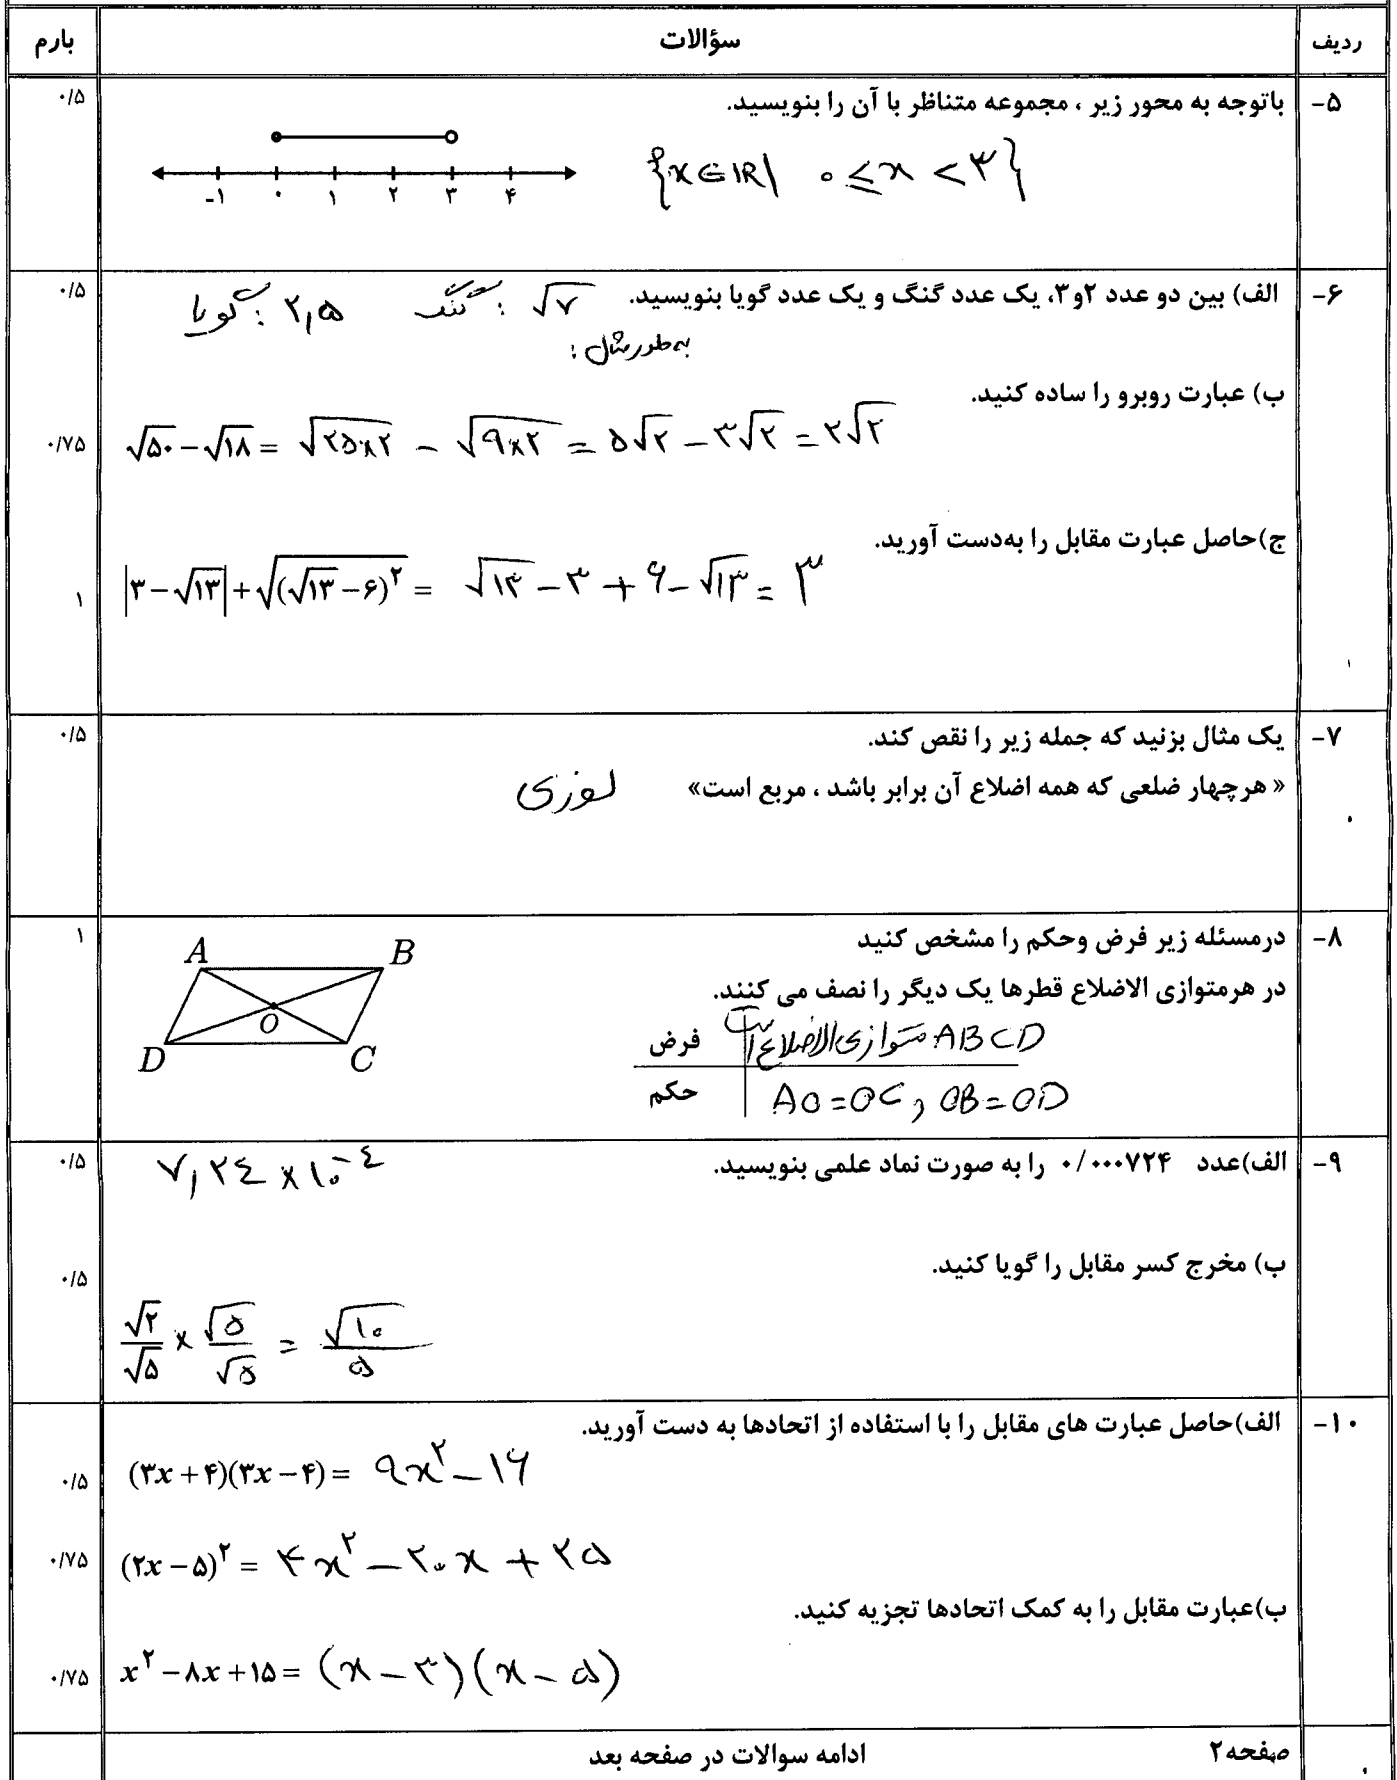 ردیف سؤالات بارم
۵- باتوجه به محور زیر ، مجموعه متناظر با آن را بنویسید. ۰/۵
{x∈IR| ۰≤x<۳}
-۱ ۰ ۱ ۲ ۳ ۴
۶- الف) بین دو عدد ۲و۳، یک عدد گنگ و یک عدد گویا بنویسید. √۷ : گنگ ۲,۵ : گویا ۰/۵
به طور مثال :
ب) عبارت روبرو را ساده کنید.
√۵۰-√۱۸= √۲۵×۲ - √۹×۲ = ۵√۲ - ۳√۲ = ۲√۲ ۰/۷۵
ج)حاصل عبارت مقابل را به‌دست آورید.
|۳-√۱۳|+√(√۱۳-۶)^۲ = √۱۳ - ۳ + ۶ - √۱۳ = ۳ ۱
۷- یک مثال بزنید که جمله زیر را نقض کند. ۰/۵
« هرچهار ضلعی که همه اضلاع آن برابر باشد ، مربع است» لوزی
۸- درمسئله زیر فرض وحکم را مشخص کنید ۱
در هرمتوازی الاضلاع قطرها یک دیگر را نصف می کنند.
A B
O
D C
فرض ABCD متوازی الاضلاع است
حکم AO=OC , OB=OD
۹- الف)عدد ۰/۰۰۰۷۲۴ را به صورت نماد علمی بنویسید. ۷,۲۴ × ۱۰^-۴ ۰/۵
ب) مخرج کسر مقابل را گویا کنید. ۰/۵
√۲/√۵ × √۵/√۵ = √۱۰/۵
۱۰- الف)حاصل عبارت های مقابل را با استفاده از اتحادها به دست آورید.
(۳x+۴)(۳x-۴)= ۹x^۲ - ۱۶ ۰/۵
(۲x-۵)^۲ = ۴x^۲ - ۲۰x + ۲۵ ۰/۷۵
ب)عبارت مقابل را به کمک اتحادها تجزیه کنید.
x^۲-۸x+۱۵= (x-۳)(x-۵) ۰/۷۵
صفحه۲ ادامه سوالات در صفحه بعد